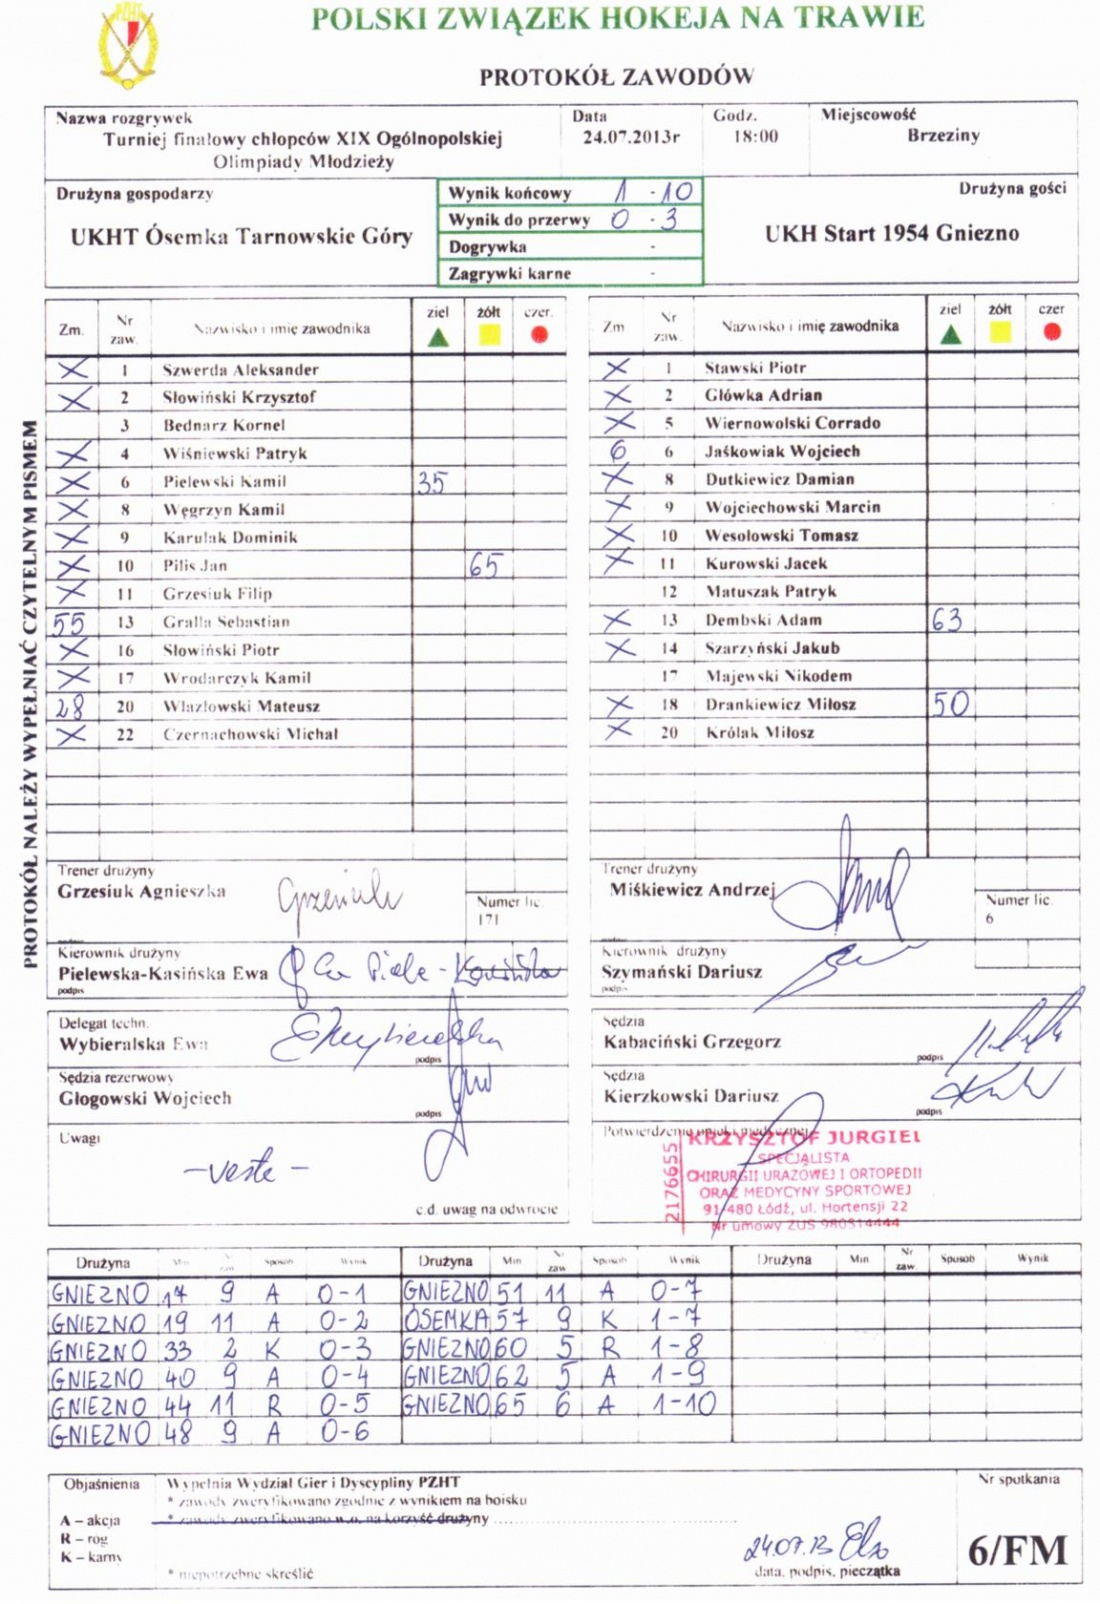 PZHT
POLSKI ZWIĄZEK HOKEJA NA TRAWIE
PROTOKÓŁ ZAWODÓW
Nazwa rozgrywek Data Godz. Miejscowość
Turniej finałowy chłopców XIX Ogólnopolskiej 24.07.2013r 18:00 Brzeziny
Olimpiady Młodzieży
Drużyna gospodarzy Wynik końcowy 1 - 10 Drużyna gości
UKHT Ósemka Tarnowskie Góry Wynik do przerwy 0 - 3 UKH Start 1954 Gniezno
Dogrywka -
Zagrywki karne -
PROTOKÓŁ NALEŻY WYPEŁNIAĆ CZYTELNYM PISMEM
Zm. Nr zaw. Nazwisko i imię zawodnika ziel żółt czer.
X 1 Szwerda Aleksander
X 2 Słowiński Krzysztof
3 Bednarz Kornel
X 4 Wiśniewski Patryk
X 6 Pielewski Kamil 35
X 8 Węgrzyn Kamil
X 9 Karulak Dominik
X 10 Pilis Jan 65
X 11 Grzesiuk Filip
55 13 Gralla Sebastian
X 16 Słowiński Piotr
X 17 Wrodarczyk Kamil
28 20 Wlazłowski Mateusz
X 22 Czernachowski Michał
Zm Nr zaw. Nazwisko i imię zawodnika ziel żółt czer
X 1 Stawski Piotr
X 2 Główka Adrian
X 5 Wiernowolski Corrado
6 6 Jaśkowiak Wojciech
X 8 Dutkiewicz Damian
X 9 Wojciechowski Marcin
X 10 Wesołowski Tomasz
X 11 Kurowski Jacek
12 Matuszak Patryk
X 13 Dembski Adam 63
X 14 Szarzyński Jakub
17 Majewski Nikodem
X 18 Drankiewicz Miłosz 50
X 20 Królak Miłosz
Trener drużyny
Grzesiuk Agnieszka
Numer lic.
171
podpis
Kierownik drużyny
Pielewska-Kasińska Ewa
podpis
Trener drużyny
Miśkiewicz Andrzej
Numer lic.
6
Kierownik drużyny
Szymański Dariusz
podpis
Delegat techn.
Wybieralska Ewa
podpis
Sędzia rezerwowy
Głogowski Wojciech
podpis
Uwagi
c.d. uwag na odwrocie
Sędzia
Kabaciński Grzegorz
podpis
Sędzia
Kierzkowski Dariusz
podpis
Potwierdzenie opieki medycznej
2176655
KRZYSZTOF JURGIEL
SPECJALISTA
CHIRURGII URAZOWEJ I ORTOPEDII
ORAZ MEDYCYNY SPORTOWEJ
91-480 Łódź, ul. Hortensji 22
Nr umowy ZUS 980514444
Drużyna Min Nr zaw Sposób Wynik Drużyna Min Nr zaw Sposób Wynik Drużyna Min Nr zaw. Sposób Wynik
GNIEZNO 14 9 A 0-1 GNIEZNO 51 11 A 0-7
GNIEZNO 19 11 A 0-2 ÓSEMKA 57 9 K 1-7
GNIEZNO 33 2 K 0-3 GNIEZNO 60 5 R 1-8
GNIEZNO 40 9 A 0-4 GNIEZNO 62 5 A 1-9
GNIEZNO 44 11 R 0-5 GNIEZNO 65 6 A 1-10
GNIEZNO 48 9 A 0-6
Objaśnienia
A – akcja
R – róg
K – karny
Wypełnia Wydział Gier i Dyscypliny PZHT
* zawody zweryfikowano zgodnie z wynikiem na boisku
* zawody zweryfikowano w.o. na korzyść drużyny
* niepotrzebne skreślić
24.07.13
data, podpis, pieczątka
Nr spotkania
6/FM